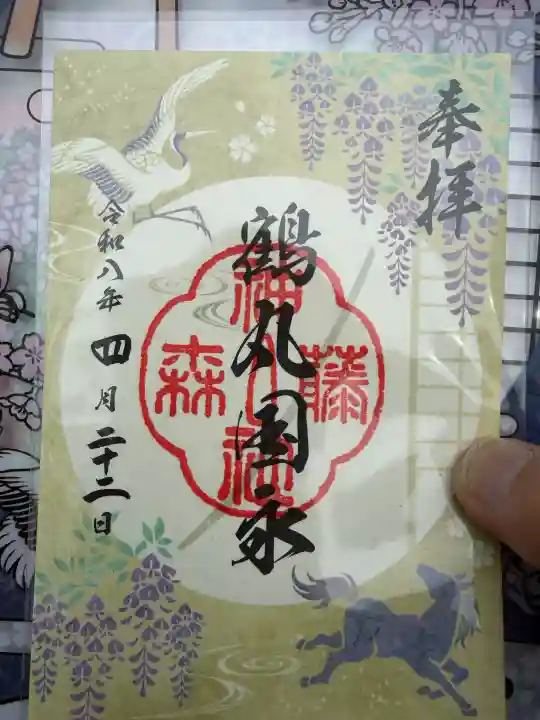 奉拝
鶴丸国永
藤森神社
令和八年四月二十二日